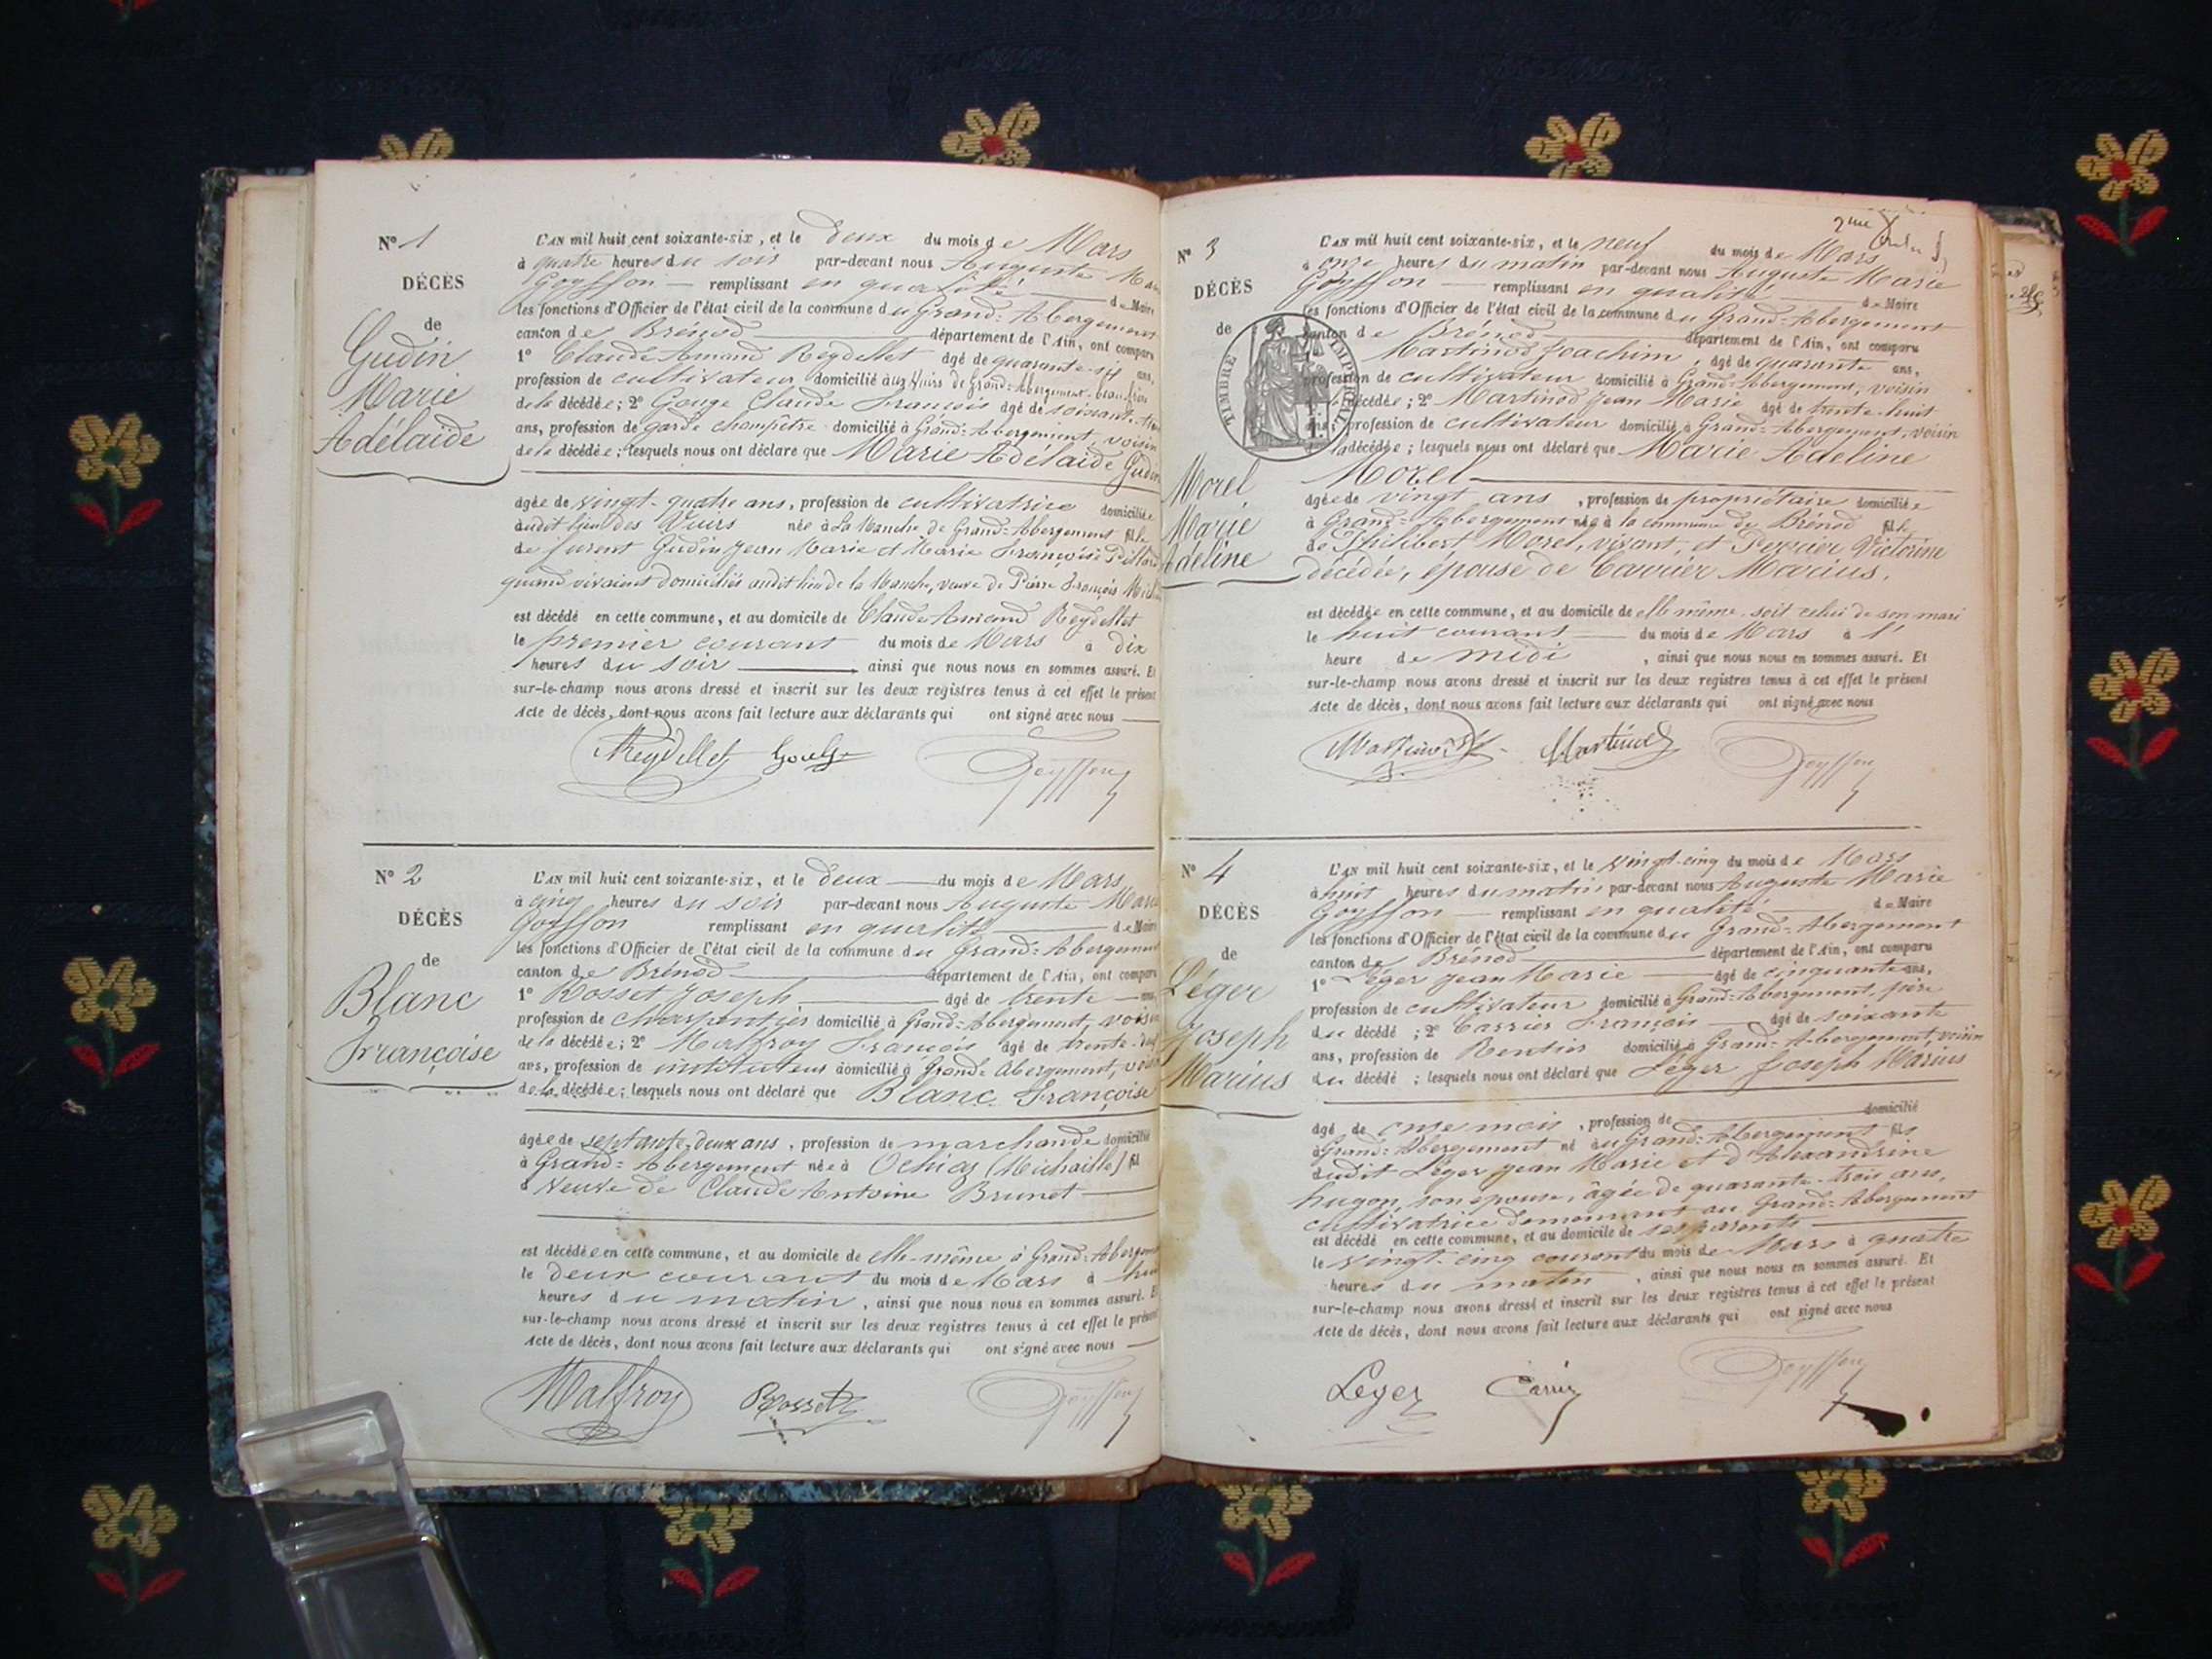 N° 1
DÉCÈS
de
Gudin
Marie
Adélaïde
L'AN mil huit cent soixante-six, et le deux du mois de Mars
à quatre heures du soir par-devant nous Auguste
Goyffon — remplissant en qualité de Maire
les fonctions d'Officier de l'état civil de la commune du Grand-Abergement
canton de Brénod département de l'Ain, ont comparu
1° Claude Amand Reydellet âgé de quarante-six ans,
profession de cultivateur domicilié aux Vuirs de Grand-Abergement, beau-frère
de la décédée; 2° Gouge Claude François âgé de soixante-trois
ans, profession de garde champêtre domicilié à Grand-Abergement, voisin
de la décédée; lesquels nous ont déclaré que Marie Adélaïde Gudin
âgée de vingt-quatre ans, profession de cultivatrice domiciliée
audit lieu des Vuirs née à La Manche de Grand-Abergement fille
de furent Gudin Jean Marie et Marie Françoise
quand vivaient domiciliés audit lieu de la Manche, veuve de Pierre François
est décédé en cette commune, et au domicile de Claude Amand Reydellet
le premier courant du mois de Mars à dix
heures du soir ainsi que nous nous en sommes assuré. Et
sur-le-champ nous avons dressé et inscrit sur les deux registres tenus à cet effet le présent
Acte de décès, dont nous avons fait lecture aux déclarants qui ont signé avec nous
Reydellet Gouge Goyffon
N° 2
DÉCÈS
de
Blanc
Françoise
L'AN mil huit cent soixante-six, et le deux du mois de Mars
à cinq heures du soir par-devant nous Auguste Marie
Goyffon remplissant en qualité de Maire
les fonctions d'Officier de l'état civil de la commune du Grand-Abergement
canton de Brénod département de l'Ain, ont comparu
1° Rosset Joseph âgé de trente ans
profession de charpentier domicilié à Grand-Abergement, voisin
de la décédée; 2° Malfroy François âgé de trente-deux
ans, profession de instituteur domicilié à Grand-Abergement, voisin
de la décédée; lesquels nous ont déclaré que Blanc Françoise
âgée de septante-deux ans, profession de marchande domicilié
à Grand-Abergement née à Ochiaz (Michaille) fil
veuve de Claude Antoine Brunet
est décédée en cette commune, et au domicile de elle-même à Grand-Abergement
le deux courant du mois de Mars à huit
heures du matin, ainsi que nous nous en sommes assuré. Et
sur-le-champ nous avons dressé et inscrit sur les deux registres tenus à cet effet le présent
Acte de décès, dont nous avons fait lecture aux déclarants qui ont signé avec nous
Malfroy Rosset Goyffon
2me
N° 3
DÉCÈS
de
TIMBRE IMPÉRIAL
Morel
Marie
Adeline
L'AN mil huit cent soixante-six, et le neuf du mois de Mars
à onze heures du matin par-devant nous Auguste Marie
Goyffon — remplissant en qualité de Maire
les fonctions d'Officier de l'état civil de la commune du Grand-Abergement
canton de Brénod département de l'Ain, ont comparu
Martinod Joachim, âgé de quarante ans,
profession de cultivateur domicilié à Grand-Abergement, voisin
décédée; 2° Martinod Jean Marie âgé de trente-huit
ans, profession de cultivateur domicilié à Grand-Abergement, voisin
la décédée; lesquels nous ont déclaré que Marie Adeline
Morel
âgée de vingt ans, profession de propriétaire domiciliée
à Grand-Abergement née à la commune de Brénod fille
de Philibert Morel, vivant, et Perrier Victorine
décédée, épouse de Carrier Marius.
est décédée en cette commune, et au domicile de elle même soit celui de son mari
le huit courant du mois de Mars à l'
heure de midi, ainsi que nous nous en sommes assuré. Et
sur-le-champ nous avons dressé et inscrit sur les deux registres tenus à cet effet le présent
Acte de décès, dont nous avons fait lecture aux déclarants qui ont signé avec nous
Martinod J. Martinod Goyffon
N° 4
DÉCÈS
de
Léger
Joseph
Marius
L'AN mil huit cent soixante-six, et le vingt-cinq du mois de Mars
à huit heures du matin par-devant nous Auguste Marie
Goyffon — remplissant en qualité de Maire
les fonctions d'Officier de l'état civil de la commune du Grand-Abergement
canton de Brénod département de l'Ain, ont comparu
1° Léger Jean Marie âgé de cinquante ans,
profession de cultivateur domicilié à Grand-Abergement, père
du décédé; 2° Carrier François âgé de soixante
ans, profession de Rentier domicilié à Grand-Abergement, voisin
du décédé; lesquels nous ont déclaré que Léger Joseph Marius
âgé de onze mois, profession de domicilié
à Grand-Abergement né au Grand-Abergement fils
dudit Léger Jean Marie et d'Alexandrine
hugon, son épouse, âgée de quarante-trois ans,
cultivatrice demeurant au Grand-Abergement
est décédé en cette commune, et au domicile de ses parents
le vingt-cinq courant du mois de Mars à quatre
heures du matin, ainsi que nous nous en sommes assuré. Et
sur-le-champ nous avons dressé et inscrit sur les deux registres tenus à cet effet le présent
Acte de décès, dont nous avons fait lecture aux déclarants qui ont signé avec nous
Léger Carrier Goyffon